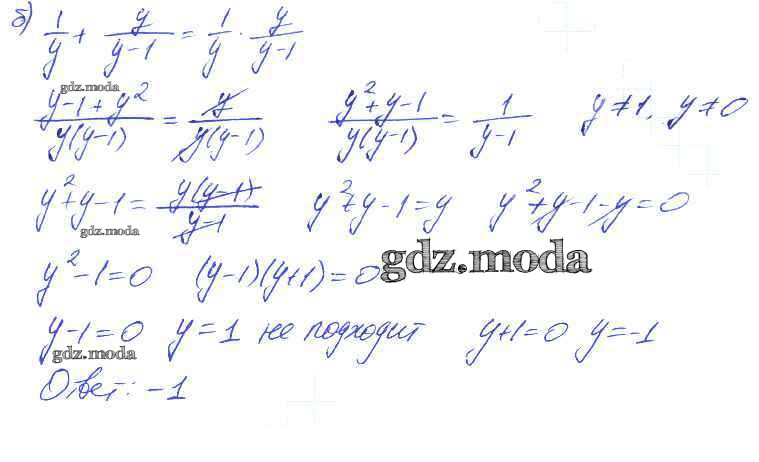 б) 1/y + y/(y-1) = 1/y · y/(y-1)
gdz.moda
(y-1+y²)/(y(y-1)) = y/(y(y-1)) (y²+y-1)/(y(y-1)) = 1/(y-1) y≠1, y≠0
y²+y-1 = y(y-1)/(y-1) y²+y-1=y y²+y-1-y=0
gdz.moda
y²-1=0 (y-1)(y+1)=0
gdz.moda
y-1=0 y=1 не подходит y+1=0 y=-1
gdz.moda
Ответ: -1